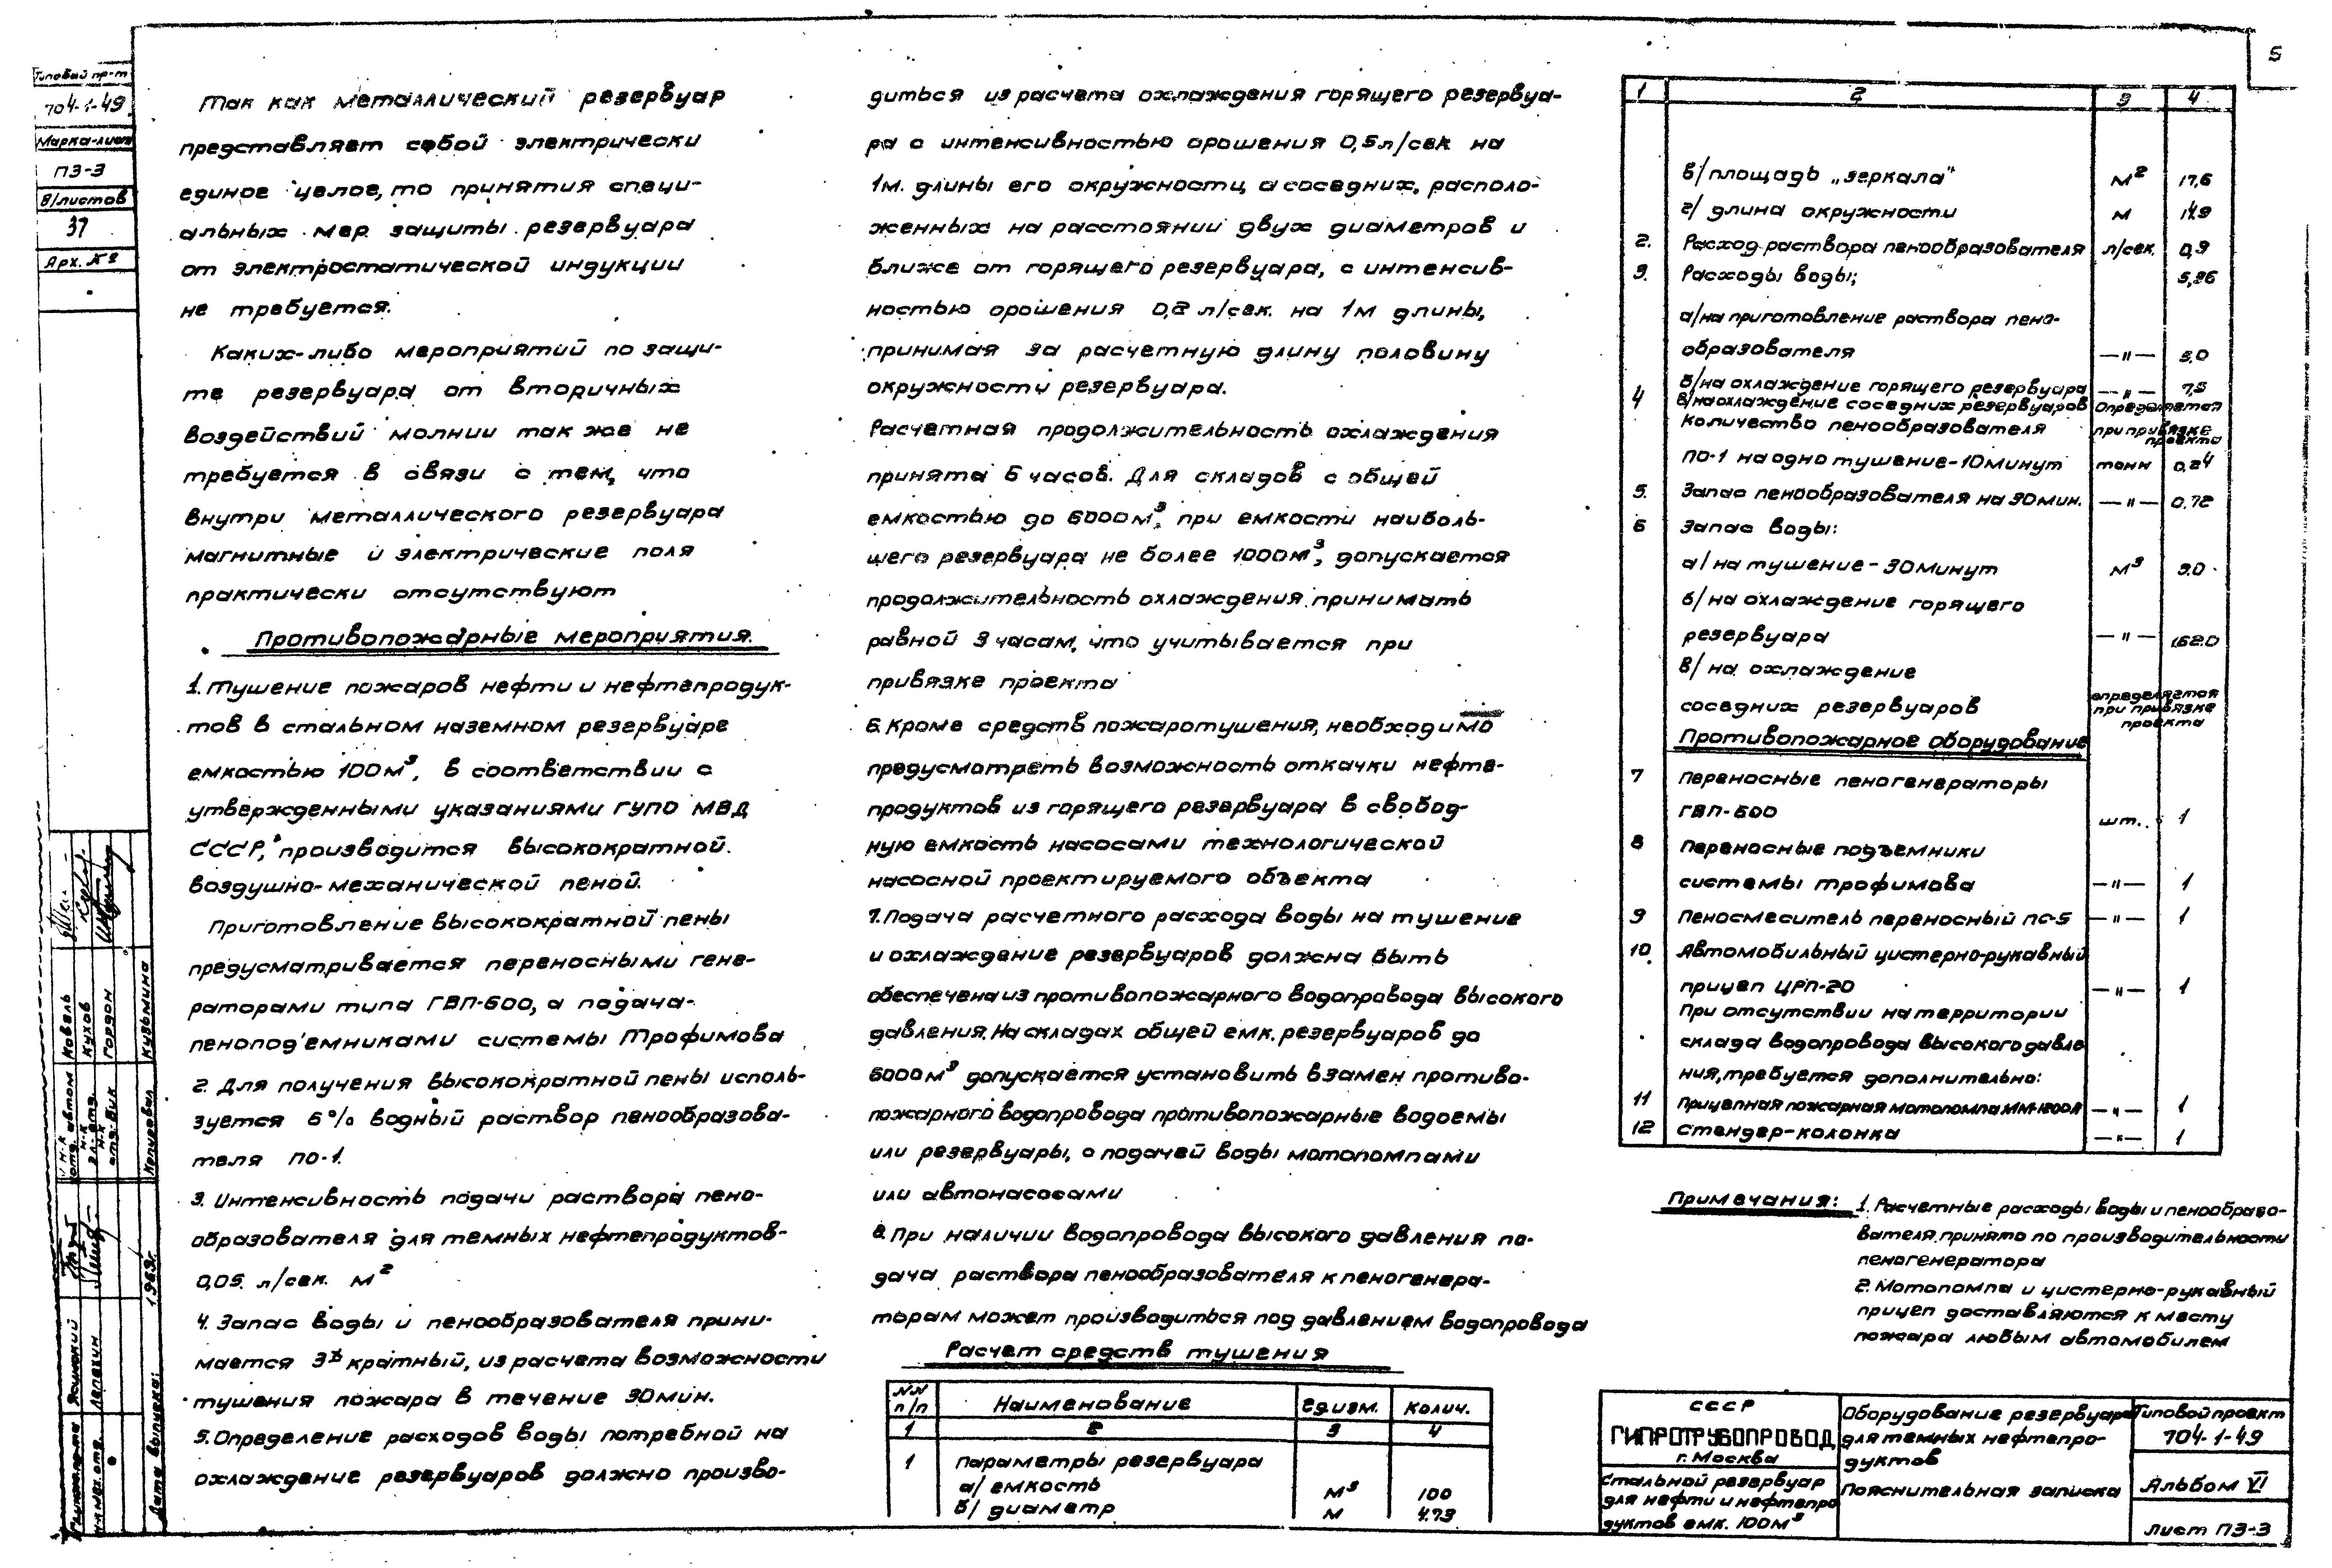 5
Типовой пр-т
704-1-49
Марка-лист
ПЗ-3
В/листов
37
Арх. №
Так как металлический резервуар
представляет собой электрически
единое целое, то принятия специ-
альных мер защиты резервуара
от электростатической индукции
не требуется.
Каких-либо мероприятий по защи-
те резервуара от вторичных
воздействий молнии так же не
требуется в связи с тем, что
внутри металлического резервуара
магнитные и электрические поля
практически отсутствуют
Противопожарные мероприятия.
1. Тушение пожаров нефти и нефтепродук-
тов в стальном наземном резервуаре
емкостью 100м³, в соответствии с
утвержденными указаниями ГУПО МВД
СССР, производится высокократной
воздушно-механической пеной.
Приготовление высокократной пены
предусматривается переносными гене-
раторами типа ГВП-600, а подача-
пенопод'емниками системы Трофимова
2. Для получения высокократной пены исполь-
зуется 6% водный раствор пенообразова-
теля ПО-1.
3. Интенсивность подачи раствора пено-
образователя для темных нефтепродуктов-
0,05 л/сек. м²
4. Запас воды и пенообразователя прини-
мается 3х кратный, из расчета возможности
тушения пожара в течение 30мин.
5. Определение расходов воды потребной на
охлаждение резервуаров должно произво-
диться из расчета охлаждения горящего резервуа-
ра с интенсивностью орошения 0,5л/сек на
1м. длины его окружности, а соседних, располо-
женных на расстоянии двух диаметров и
ближе от горящего резервуара, с интенсив-
ностью орошения 0,2 л/сек. на 1м длины,
принимая за расчетную длину половину
окружности резервуара.
Расчетная продолжительность охлаждения
принята 6 часов. Для складов с общей
емкостью до 6000м³, при емкости наиболь-
шего резервуара не более 1000м³, допускается
продолжительность охлаждения принимать
равной 3 часам, что учитывается при
привязке проекта
6. Кроме средств пожаротушения, необходимо
предусмотреть возможность откачки нефте-
продуктов из горящего резервуара в свобод-
ную емкость насосами технологической
насосной проектируемого объекта
7. Подача расчетного расхода воды на тушение
и охлаждение резервуаров должна быть
обеспечена из противопожарного водопровода высокого
давления. На складах общей емк. резервуаров до
6000м³ допускается установить взамен противо-
пожарного водопровода противопожарные водоемы
или резервуары, с подачей воды мотопомпами
или автонасосами
8. При наличии водопровода высокого давления по-
дача раствора пенообразователя к пеногенера-
торам может производиться под давлением водопровода
Расчет средств тушения
NN п/п Наименование Ед.изм. Колич.
1 2 3 4
1 Параметры резервуара
а/ емкость м³ 100
б/ диаметр м 4.73
1 2 3 4
в/ площадь „зеркала" м² 17,6
г/ длина окружности м 14.9
2. Расход раствора пенообразователя л/сек. 0,9
3. Расходы воды; 5,96
а/ на приготовление раствора пено-
образователя —"— 5,0
б/ на охлаждение горящего резервуара —"— 7,5
в/ на охлаждение соседних резервуаров определяется
при привязке
проекта
4 Количество пенообразователя
ПО-1 на одно тушение-10минут тонн 0,24
5. Запас пенообразователя на 30мин. —"— 0,72
6 Запас воды:
а/ на тушение-30минут м³ 9.0
б/ на охлаждение горящего
резервуара —"— 162.0
в/ на охлаждение
соседних резервуаров определяется
при привязке
проекта
Противопожарное оборудование
7 Переносные пеногенераторы
ГВП-600 шт. 1
8 Переносные подъемники
системы Трофимова —"— 1
9 Пеносмеситель переносный ПС-5 —"— 1
10 Автомобильный цистерно-рукавный
прицеп ЦРП-20 —"— 1
При отсутствии на территории
склада водопровода высокого давле
ния, требуется дополнительно:
11 Прицепная пожарная мотопомпа ММ-1200А —"— 1
12 Стендер-колонка —"— 1
Примечания: 1. Расчетные расходы воды и пенообразо-
вателя принято по производительности
пеногенератора
2. Мотопомпа и цистерно-рукавный
прицеп доставляются к месту
пожара любым автомобилем
СССР
ГИПРОТРУБОПРОВОД
г. Москва
Стальной резервуар
для нефти и нефтепро
дуктов емк. 100м³
Оборудование резервуара
для темных нефтепро-
дуктов
Пояснительная записка
Типовой проект
704-1-49
Альбом VI
Лист ПЗ-3
Коваль
Кухов
Гордон
Кузьмина
Копировал
Ясинский
Лепехин
нач. отд.
Дата выпуска:
1969г.